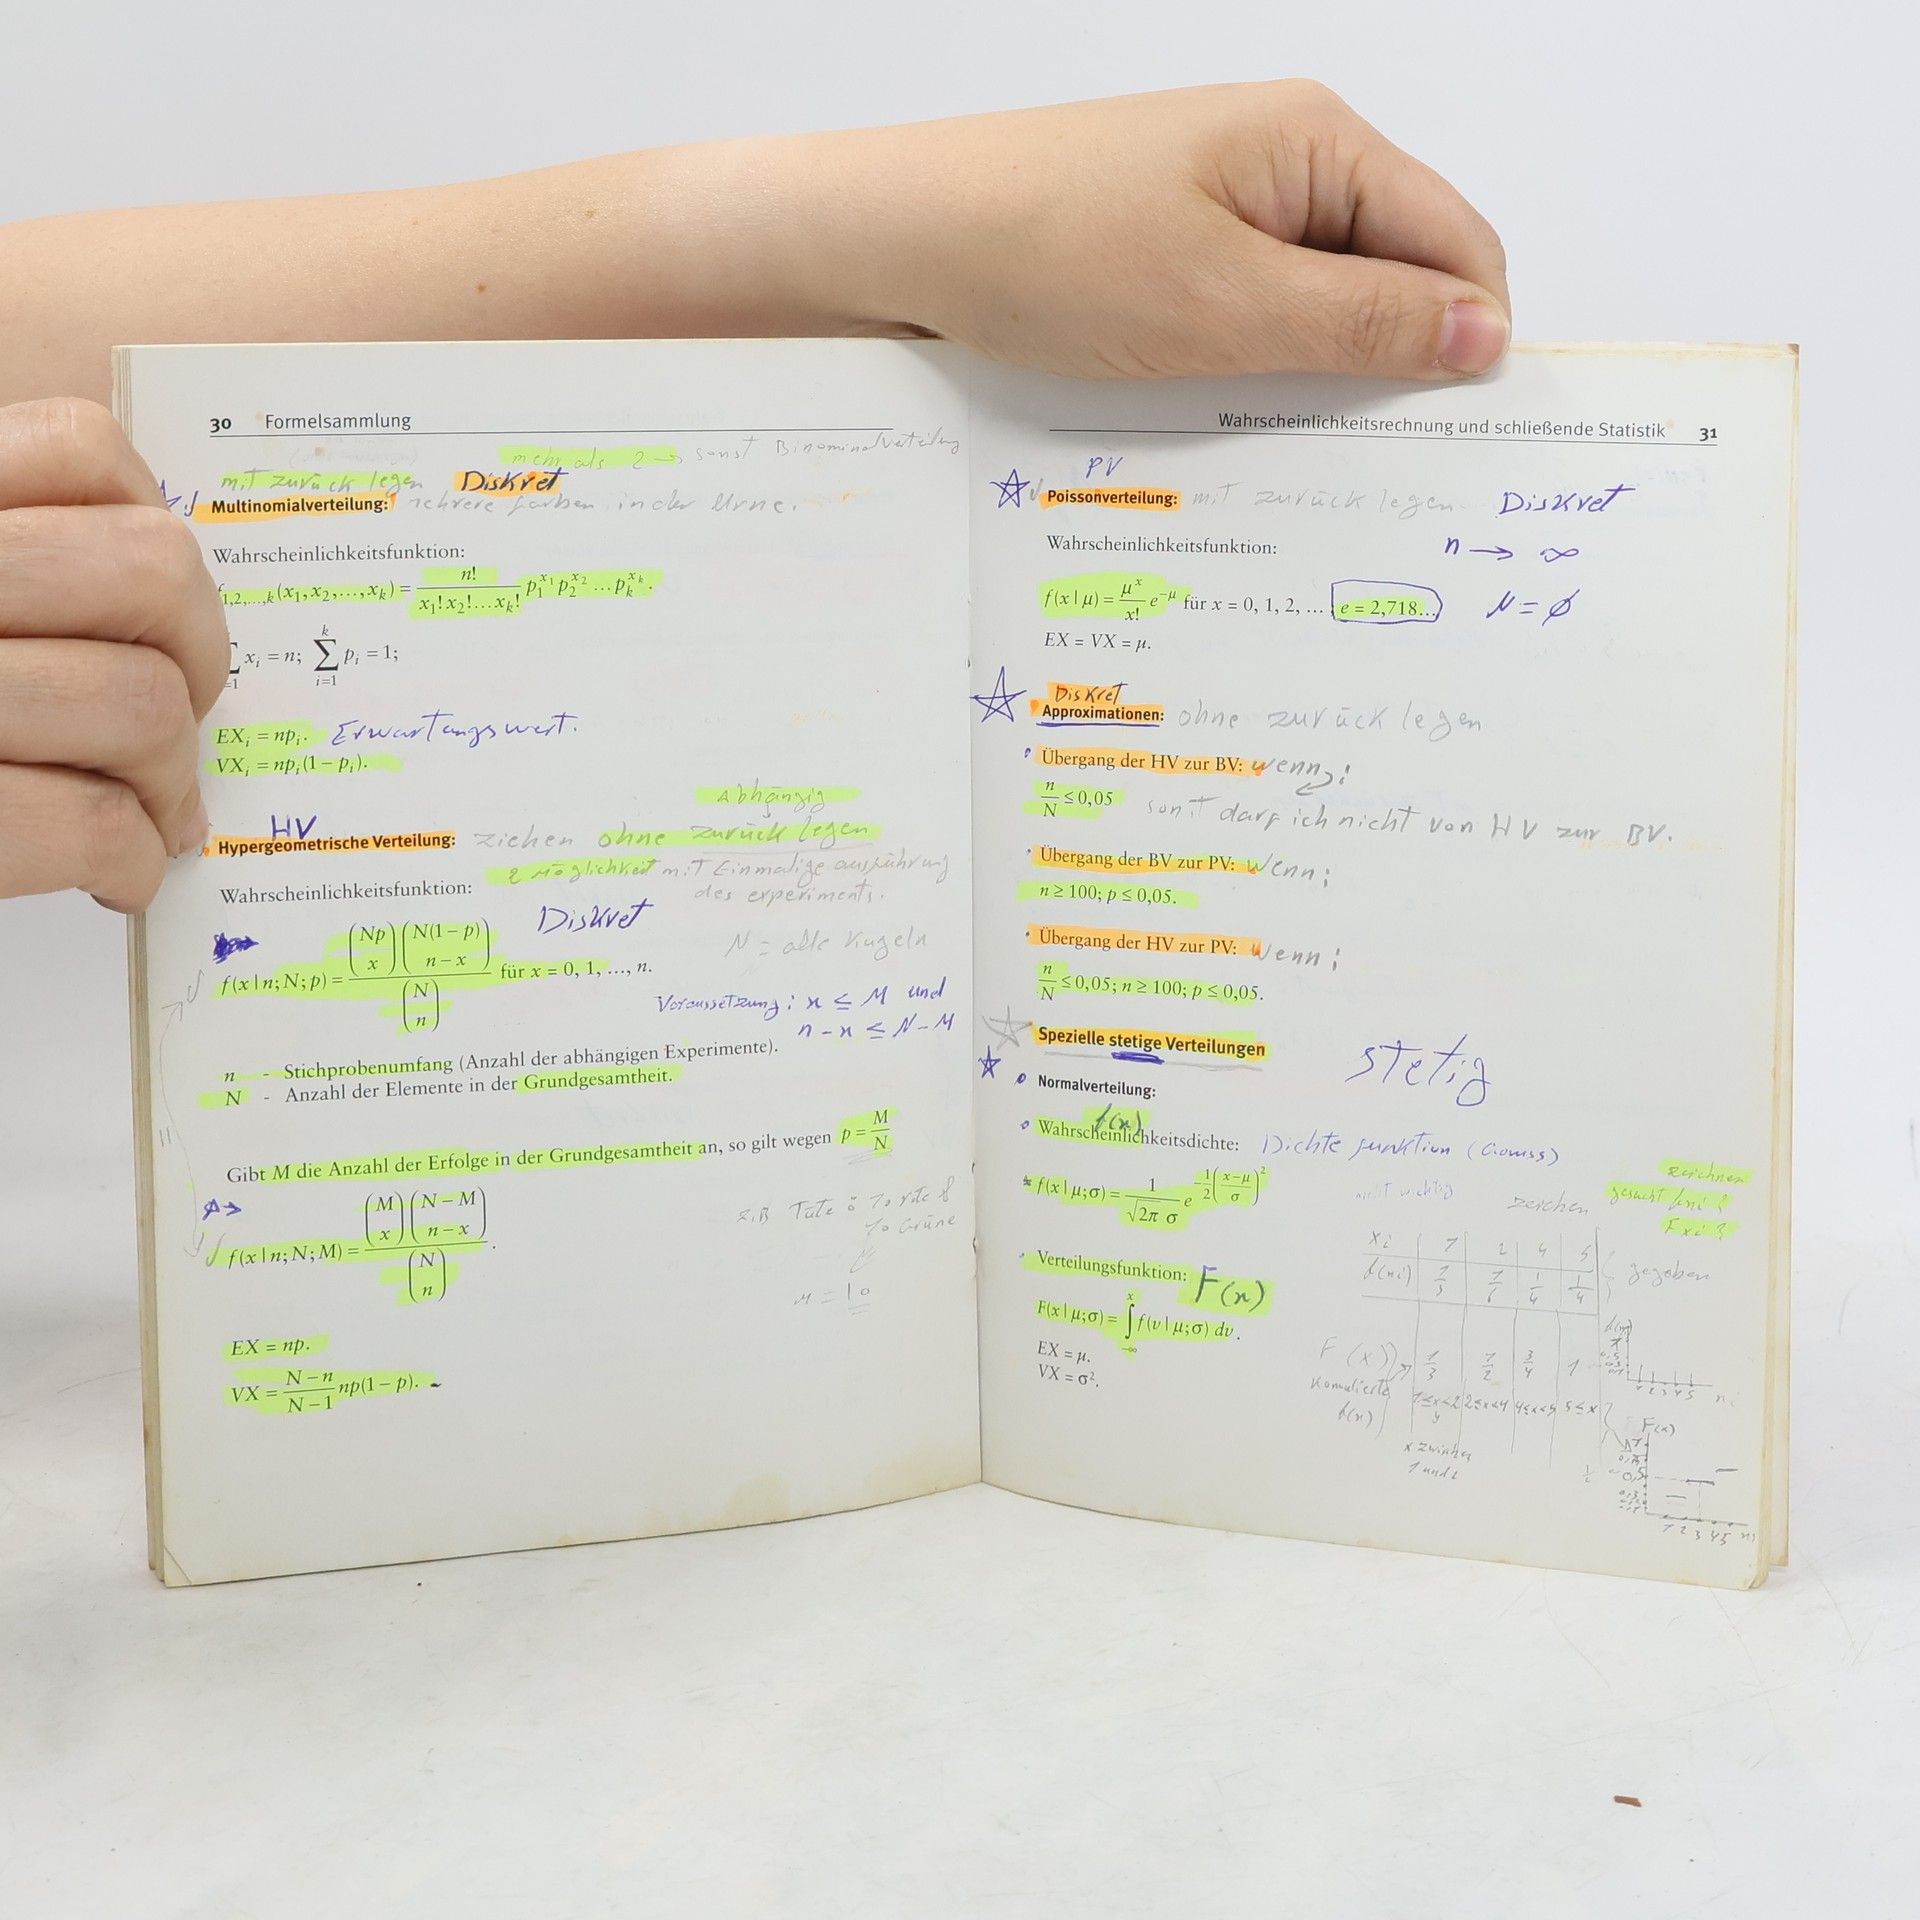 30 Formelsammlung
mehr als 2 → sonst Binominalverteilung
mit zurück legen Diskret
Multinomialverteilung: mehrere farben in der Urne.
Wahrscheinlichkeitsfunktion:
f1,2,…,k(x₁, x₂, …, xₖ) = n! / (x₁! x₂! … xₖ!) p₁^x₁ p₂^x₂ … pₖ^xₖ.
xᵢ = n; ∑ᵢ₌₁ᵏ pᵢ = 1;
EXᵢ = npᵢ. Erwartungswert.
VXᵢ = npᵢ(1 – pᵢ).
abhängig
HV
Hypergeometrische Verteilung: ziehen ohne zurück legen
2 möglichkeit mit Einmalige ausführung
des experiments.
Wahrscheinlichkeitsfunktion:
Diskret
N = alle Kugeln
f(x | n; N; p) = (Np über x) (N(1 – p) über n – x) / (N über n) für x = 0, 1, …, n.
Voraussetzung: x ≤ M und
n – x ≤ N – M
n - Stichprobenumfang (Anzahl der abhängigen Experimente).
N - Anzahl der Elemente in der Grundgesamtheit.
Gibt M die Anzahl der Erfolge in der Grundgesamtheit an, so gilt wegen p = M/N
z.B Tüte : 10 rote
10 Grüne
f(x | n; N; M) = (M über x) (N – M über n – x) / (N über n).
M = 10
EX = np.
VX = (N – n)/(N – 1) np(1 – p).
Wahrscheinlichkeitsrechnung und schließende Statistik 31
PV
Poissonverteilung: mit zurück legen Diskret
Wahrscheinlichkeitsfunktion: n → ∞
f(x | μ) = μˣ/x! e^–μ für x = 0, 1, 2, … e = 2,718… μ = ø
EX = VX = μ.
Diskret
Approximationen: ohne zurück legen
Übergang der HV zur BV: wenn:
n/N ≤ 0,05 sonst darf ich nicht von HV zur BV.
Übergang der BV zur PV: wenn:
n ≥ 100; p ≤ 0,05.
Übergang der HV zur PV: wenn:
n/N ≤ 0,05; n ≥ 100; p ≤ 0,05.
Spezielle stetige Verteilungen stetig
Normalverteilung:
f(x)
Wahrscheinlichkeitsdichte: Dichte funktion (Gauss)
f(x | μ; σ) = 1/(√2π σ) e^–½((x–μ)/σ)²
nicht wichtig
zeichen
zeichnen
gesucht
xi 1 2 4 5
f(xi) 1/3 1/6 1/4 1/4 gegeben
Verteilungsfunktion: F(x)
F(x | μ; σ) = ∫ f(v | μ; σ) dv.
EX = μ.
VX = σ².
F(x) 1/3 1/2 3/4 1
Komulierte f(x) 1≤x<2 2≤x<4 4≤x<5 5≤x
x zwischen
1 und 2
F(x)
1 2 3 4 5